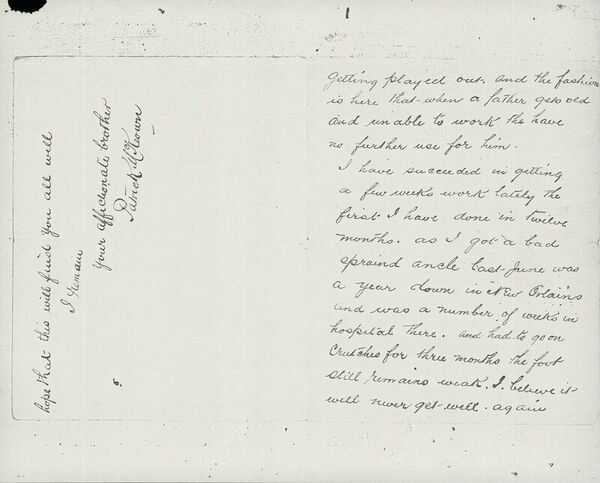 getting played out. and the fashion
is here that when a father gets old
and unable to work the have
no further use for him.
I have succeeded in getting
a few weeks work lately the
first I have done in twelve
months. as I got a bad
spraind ancle last June was
a year down in New Orlains
and was a number of weeks in
hospital there. and had to go on
Crutches for three months the foot
still remains weak. I believe it
will never get well again
hope that this will find you all well
I remain
your affictionate brother
Patrick McKeown